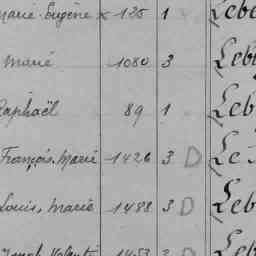 Marie Eugène x 125 1 Lebe
Marie 1080 3 Leb
Raphaël 89 1 Leb
François, Marie 1426 3 D Le
Louis, Marie 1488 3 D Leb
1453 3 D Leb